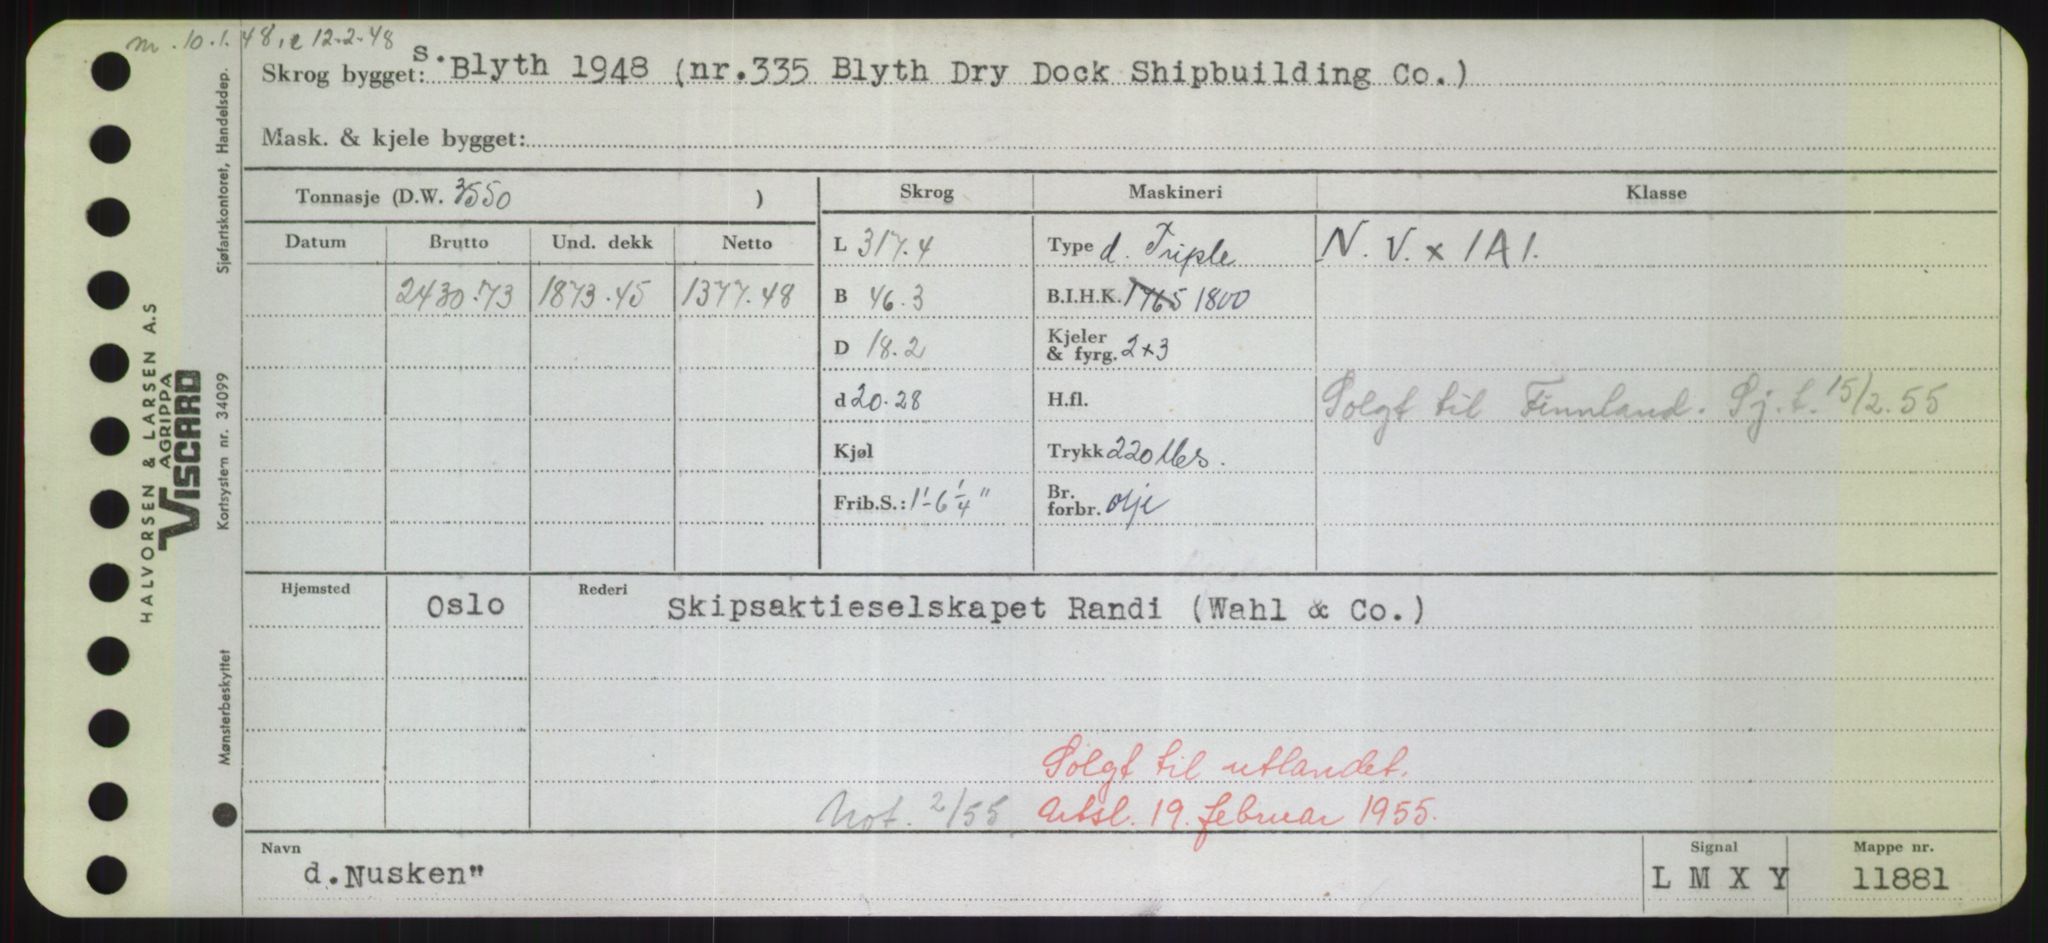 m. 10.1.48, e 12.2.48
Skrog bygget: s. Blyth 1948 (nr.335 Blyth Dry Dock Shipbuilding Co.)
Mask. & kjele bygget:
Tonnasje (D.W. 3550 )
Skrog Maskineri Klasse
Datum Brutto Und. dekk Netto
L 317.4 Type d. Triple N. V. x 1A1.
2430.73 1873.45 1377.48
B 46.3 B.I.H.K. 1765 1800
D 18.2 Kjeler & fyrg. 2x3
d 20.28 H.fl. Solgt til Finnland. Sj.t. 15/2.55
Kjøl Trykk 220 lbs.
Frib.S.: 1'-6 1/4" Br. forbr. olje
Hjemsted Oslo Rederi Skipsaktieselskapet Randi (Wahl & Co.)
Solgt til utlandet.
Not. 2/55 Avsl. 19. februar 1955.
Navn Signal Mappe nr.
d. Nusken" L M X Y 11881
HALVORSEN & LARSEN A.S
AGRIPPA
VISCARD
Mønsterbeskyttet Kortsystem nr. 34099 Sjøfartskontoret, Handelsdep.